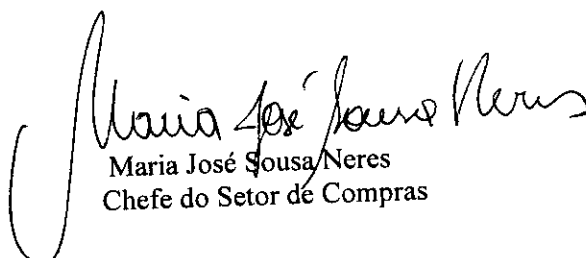 Maria José Sousa Neres
Maria José Sousa Neres
Chefe do Setor de Compras